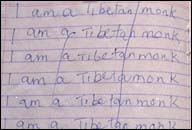 I am a Tibetan monk
I am a Tibetan monk
I am a Tibetan monk
I am a Tibetamonk
I am a Tibetan monk
I am a Tibetan monk